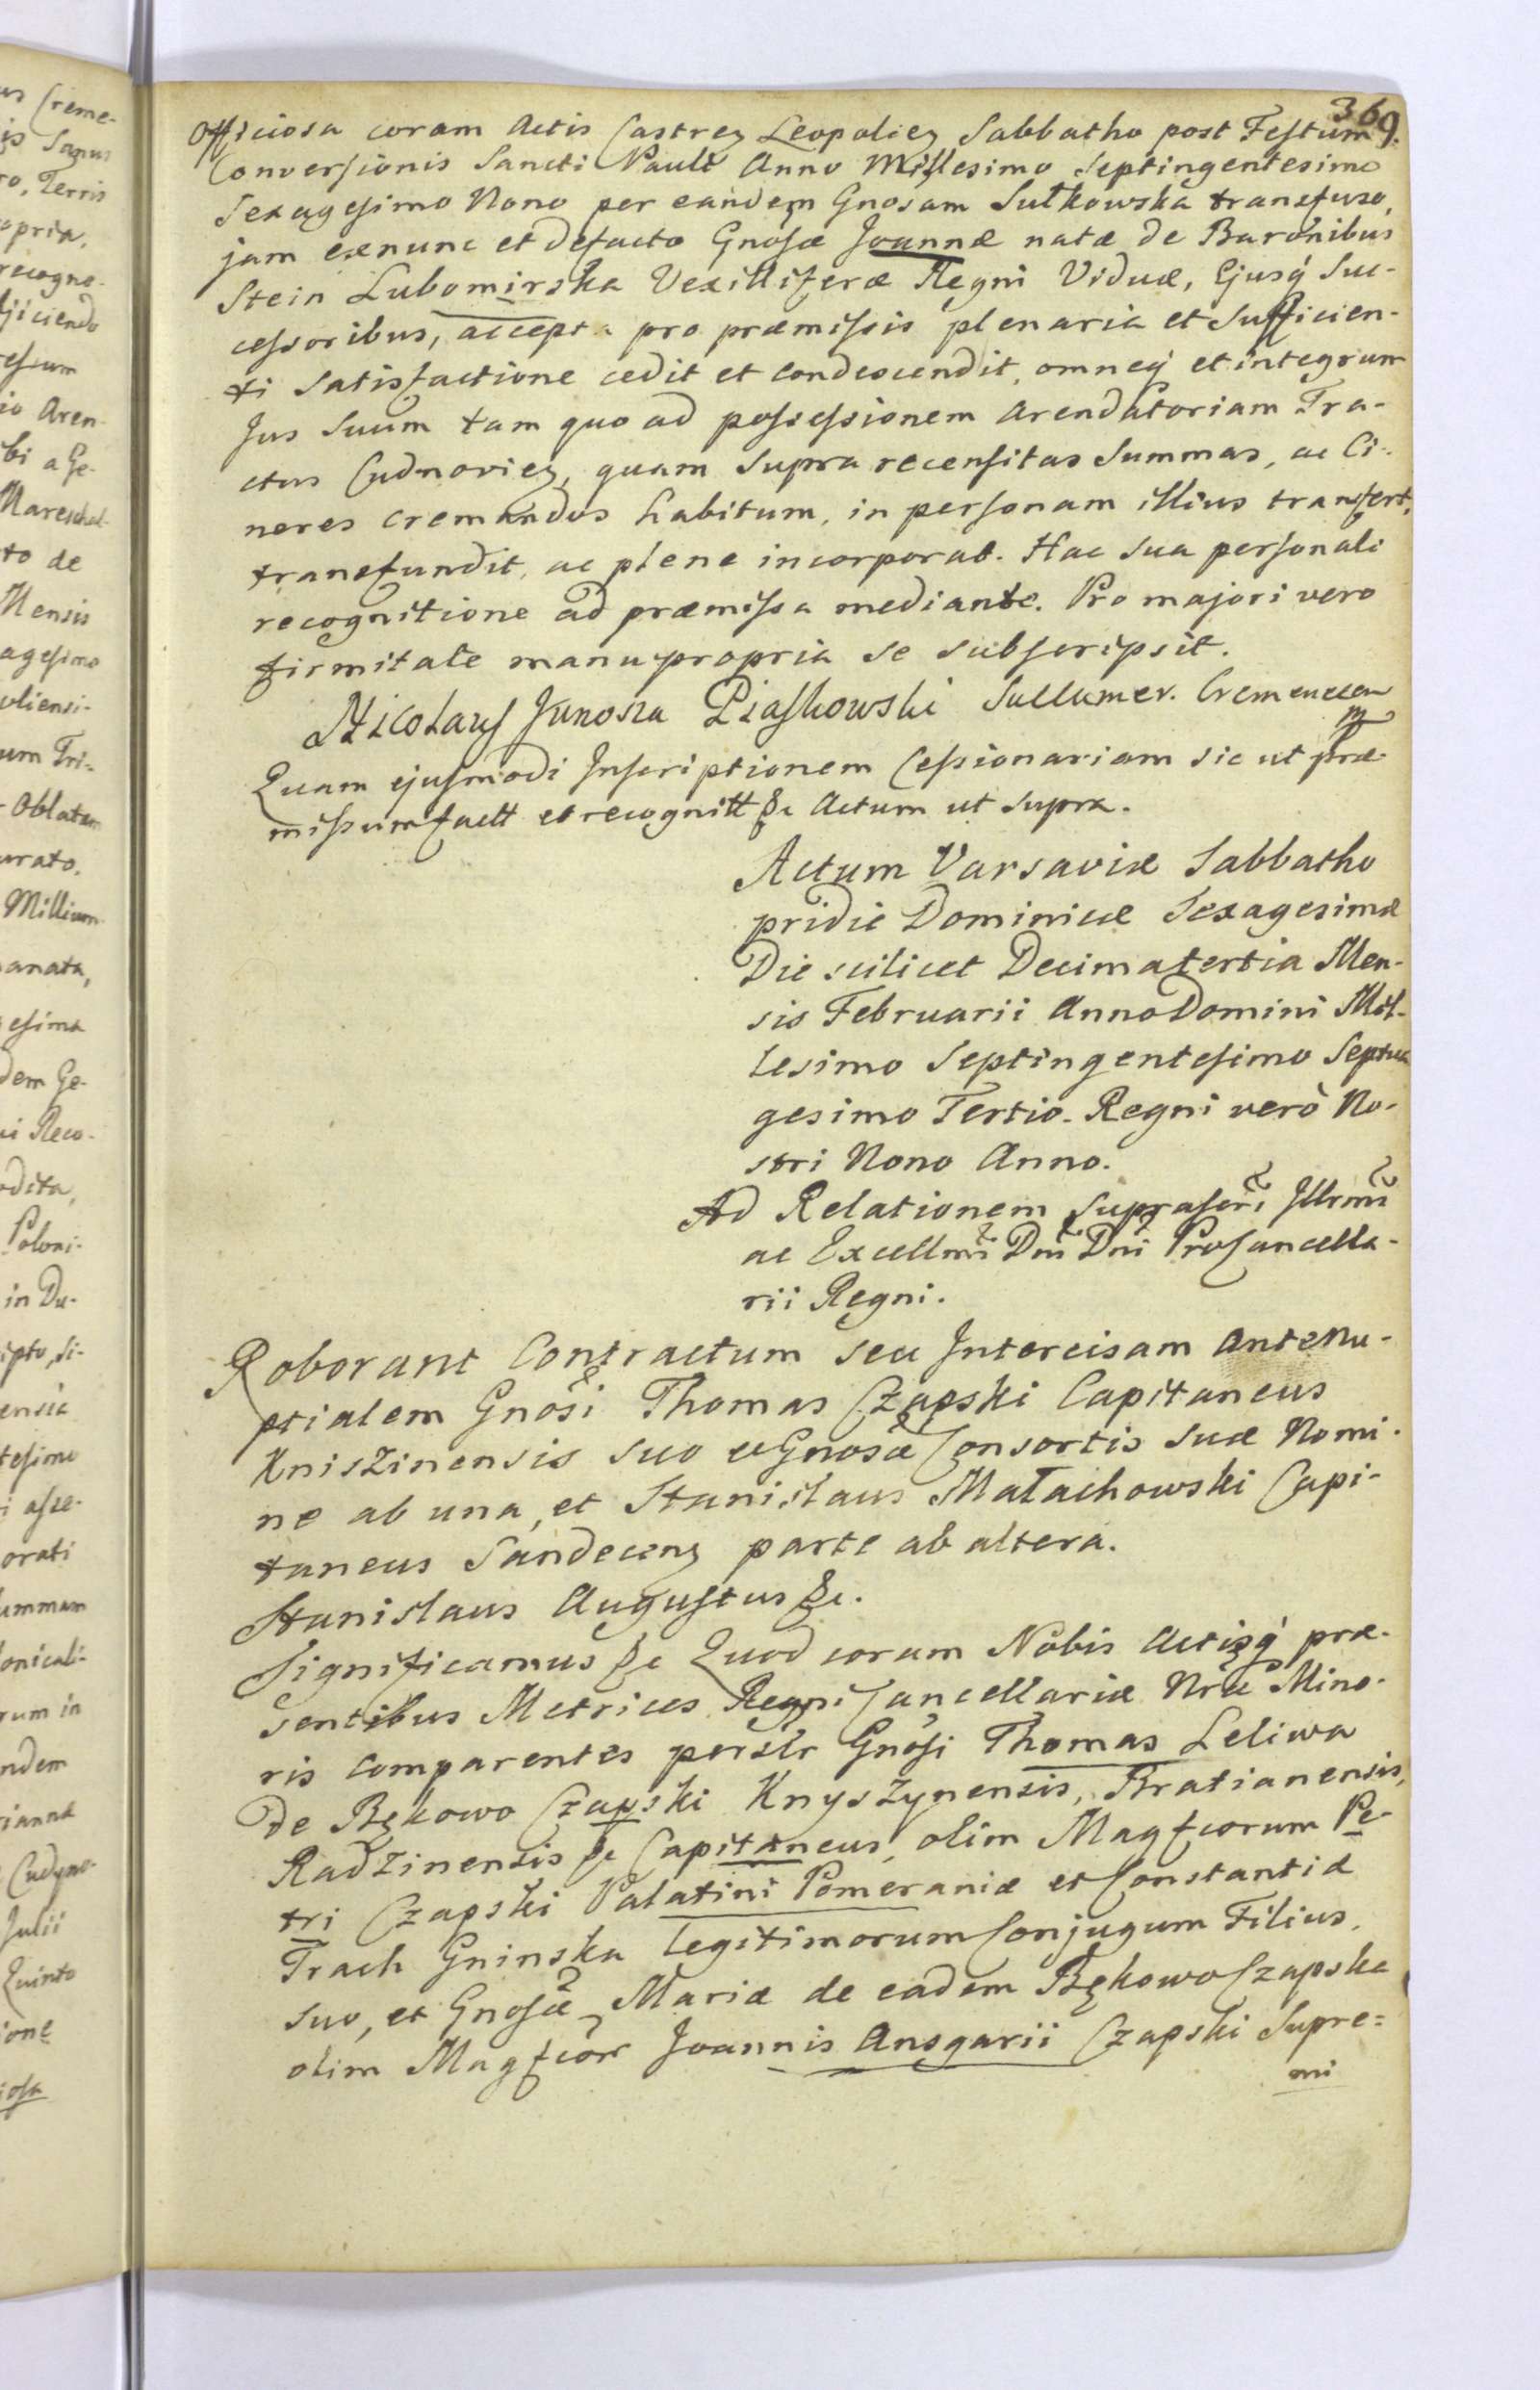 369.
Officiosa coram Actis Castren Leopolien Sabbatho post Festum
Conversionis Sancti Pauli Anno Millesimo Septingentesimo
Sexagesimo Nono per eandem Gnosam Sułkowska transfuso,
jam exnunc et defacto Gnosæ Joannæ natæ de Baronibus
Stein Lubomirska Vexilliferæ Regni Viduæ, Ejusq́ Suc-
cessoribus, accepta pro præmissis plenaria et Sufficien-
ti Satisfactione cedit et Condescendit, omneq́ et integrum
Jus Suum tam quo ad possessionem Arendatoriam Tra-
ctus Cudnovien, quam Supra recensitas Summas, ac Ci-
neres cremandos habitum, in personam illius transfert,
transfundit, ac plene incorporat. Hac Sua personali
recognitione ad præmissa mediante. Pro majori vero
firmitate manu propria se subscripsit.
Nicolaus Junosza Piaskowski Succamer. Cremenecen
mp
Quam ejusmodi Inscriptionem Cessionariam sic ut præ-
missum factt et recognitt &c Actum ut Supra.
Actum Varsaviæ Sabbatho
pridie Dominicæ Sexagesimæ
Die scilicet Decimatertia Men-
sis Februarii Anno Domini Mil-
lesimo Septingentesimo Septua
gesimo Tertio. Regni verò No-
stri Nono Anno.
Ad Relationem suprascri Illrmi
ac Excellmi Dni Dni ProCancella-
rii Regni.
Roborant Contractum seu Intercisam Antenu-
ptialem Gnosi Thomas Czapski Capitaneus
Kniszinensis suo et Gnosæ Consortis suæ Nomi-
ne ab una, et Stanislaus Małachowski Capi-
taneus Sandecen parte ab altera.
Stanislaus Augustus &c.
Significamus &c Quod coram Nobis Actisq́ præ-
sentibus Metrices Regni Cancellariæ Nræ Mino-
ris Comparentes persłr Gnosi Thomas Leliwa
de Bękowo Czapski Knyszynensis, Bratianensis,
Radzinensis &c Capitaneus, olim Magfcorum Pe-
tri Czapski Palatini Pomeraniæ et Constantiæ
Trach Gninska legitimorum Conjugum Filius,
suo, et Gnosæ Mariæ de eadem Bękowo Czapska
olim Magfcor Joannis Ansgarii Czapski Supre=
mi